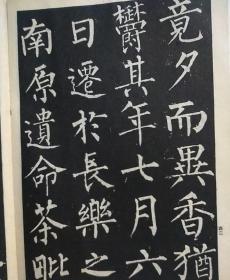 竟夕而異香猶
欝其年七月六
日遷於長樂之
南原遺命茶毗